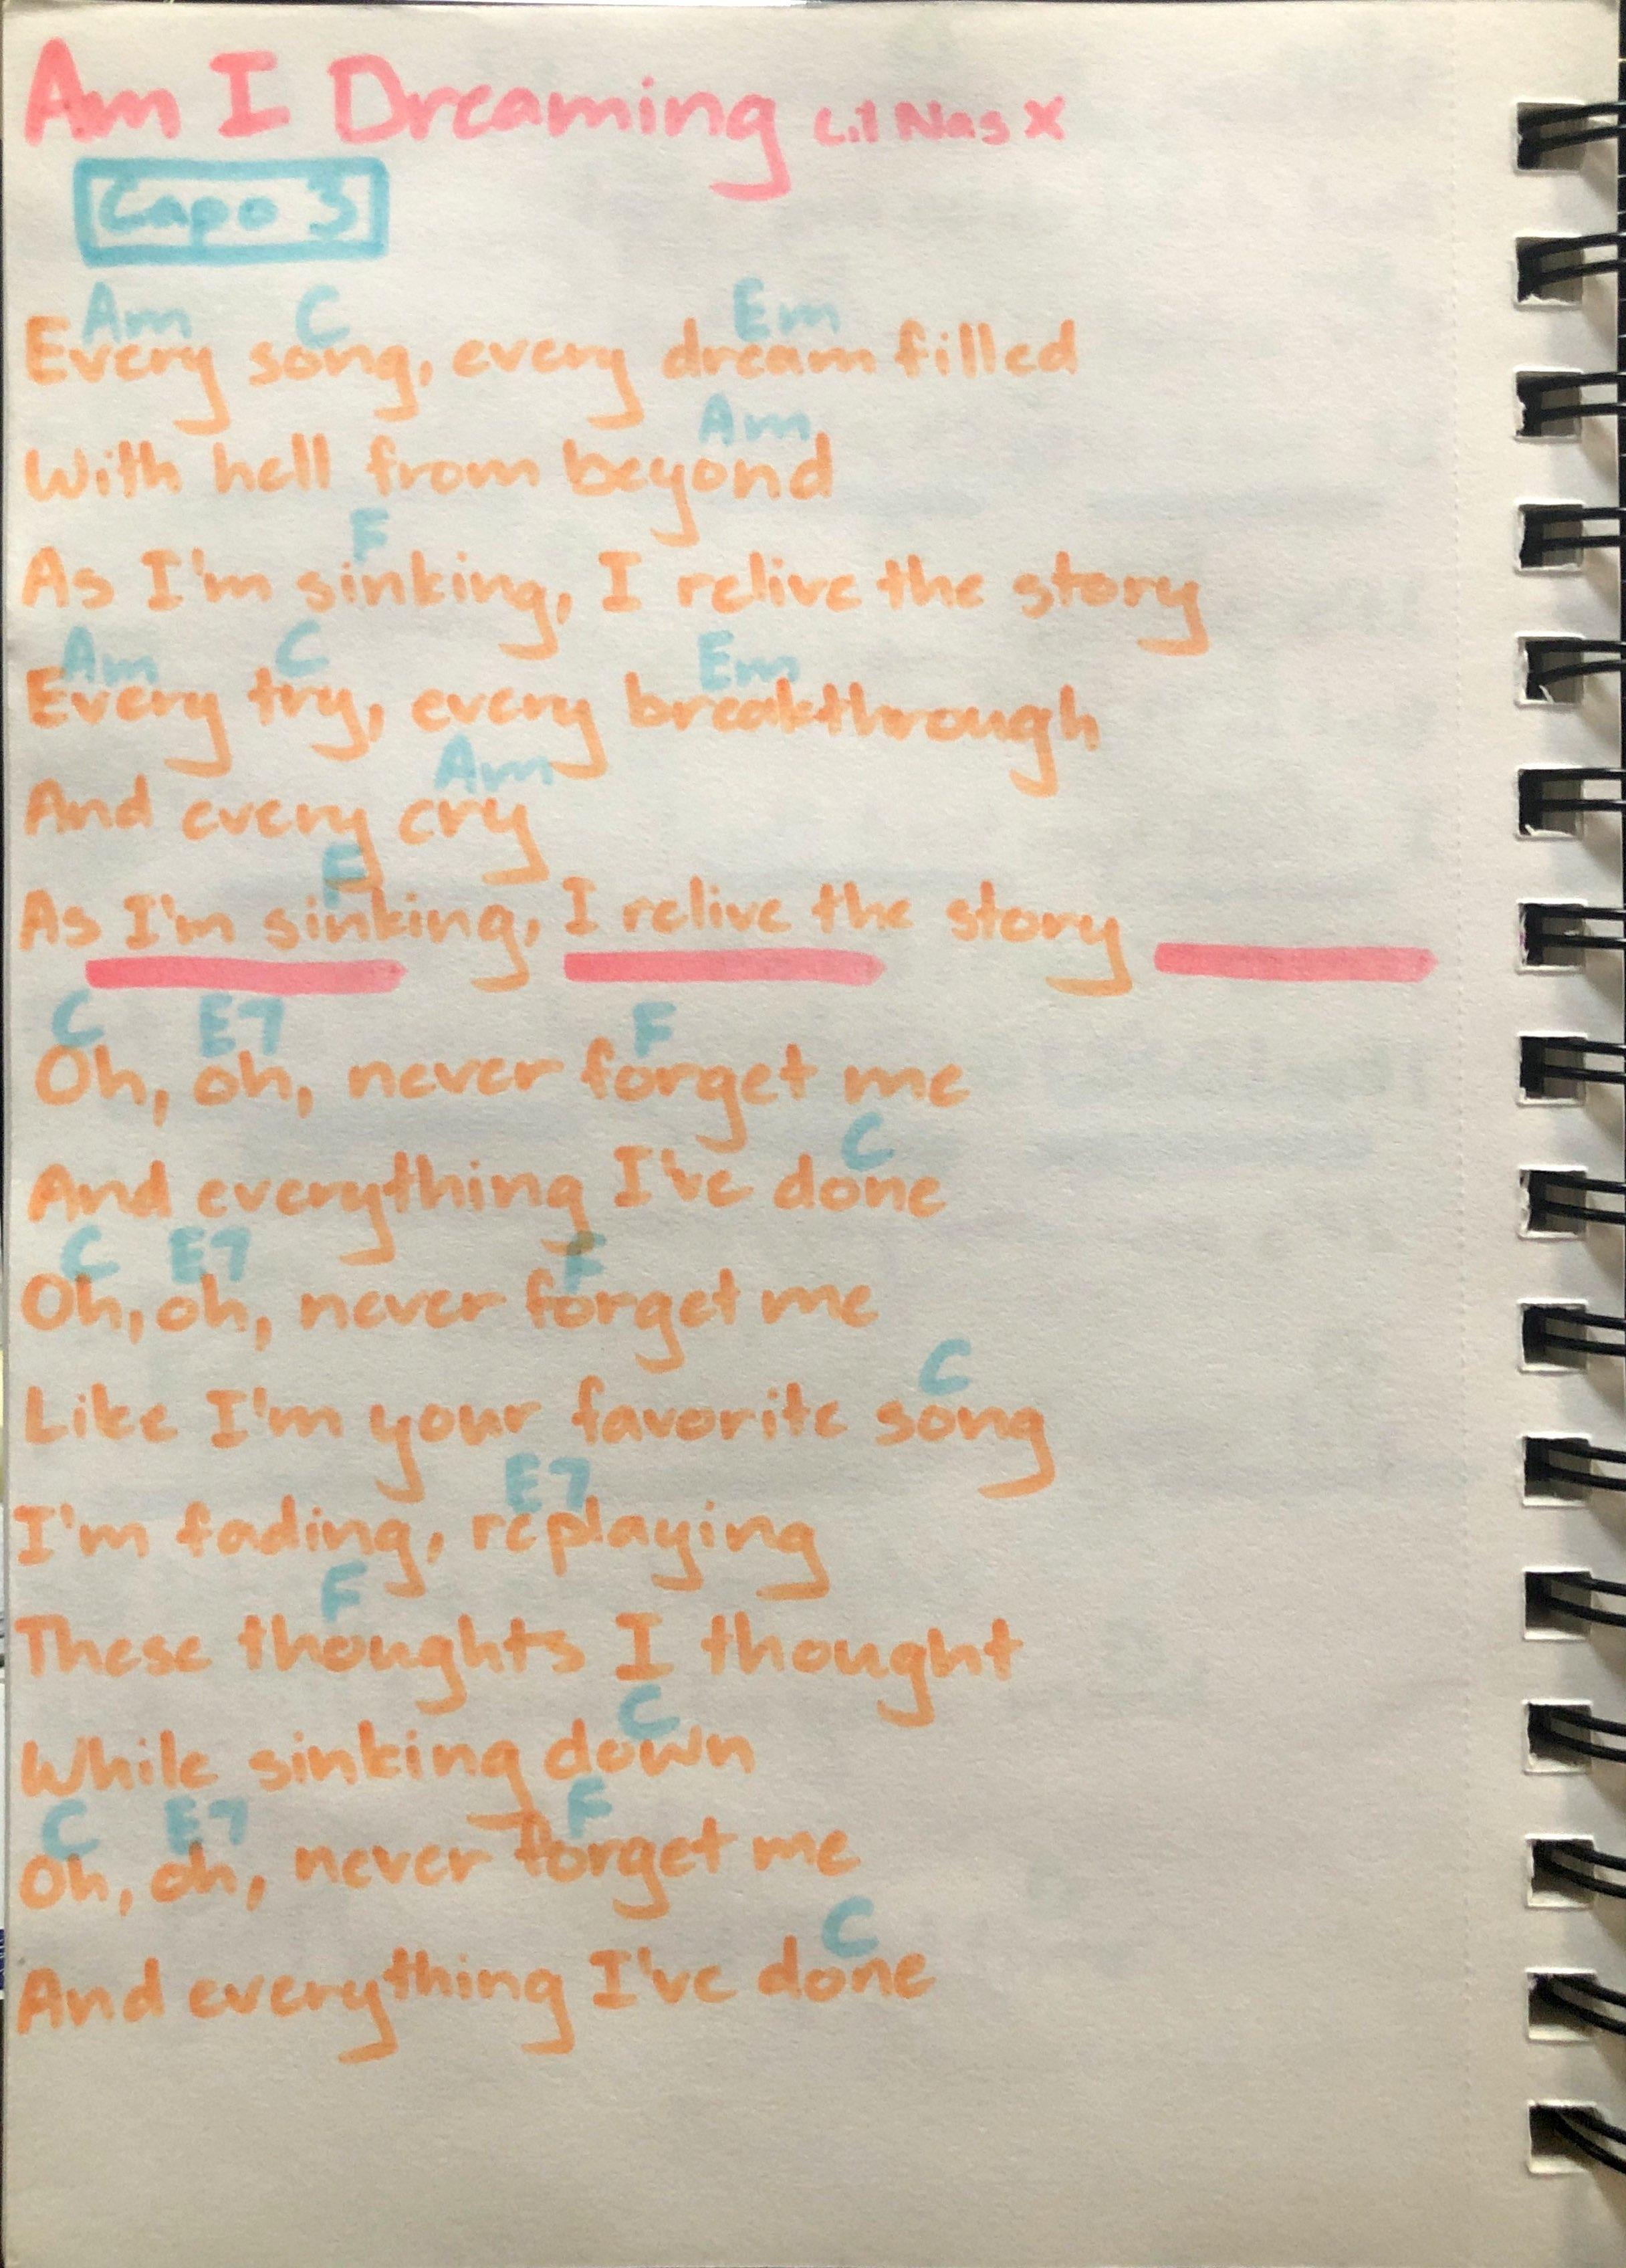 Am I Dreaming Lil Nas X
Capo 3
Am C Em
Every song, every dream filled
Am
With hell from beyond
F
As I'm sinking, I relive the story
Am C Em
Every try, every breakthrough
Am
And every cry
F
As I'm sinking, I relive the story
C E7 F
Oh, oh, never forget me
C
And everything I've done
C E7 F
Oh, oh, never forget me
C
Like I'm your favorite song
E7
I'm fading, replaying
F
These thoughts I thought
C
While sinking down
C E7 F
Oh, oh, never forget me
C
And everything I've done